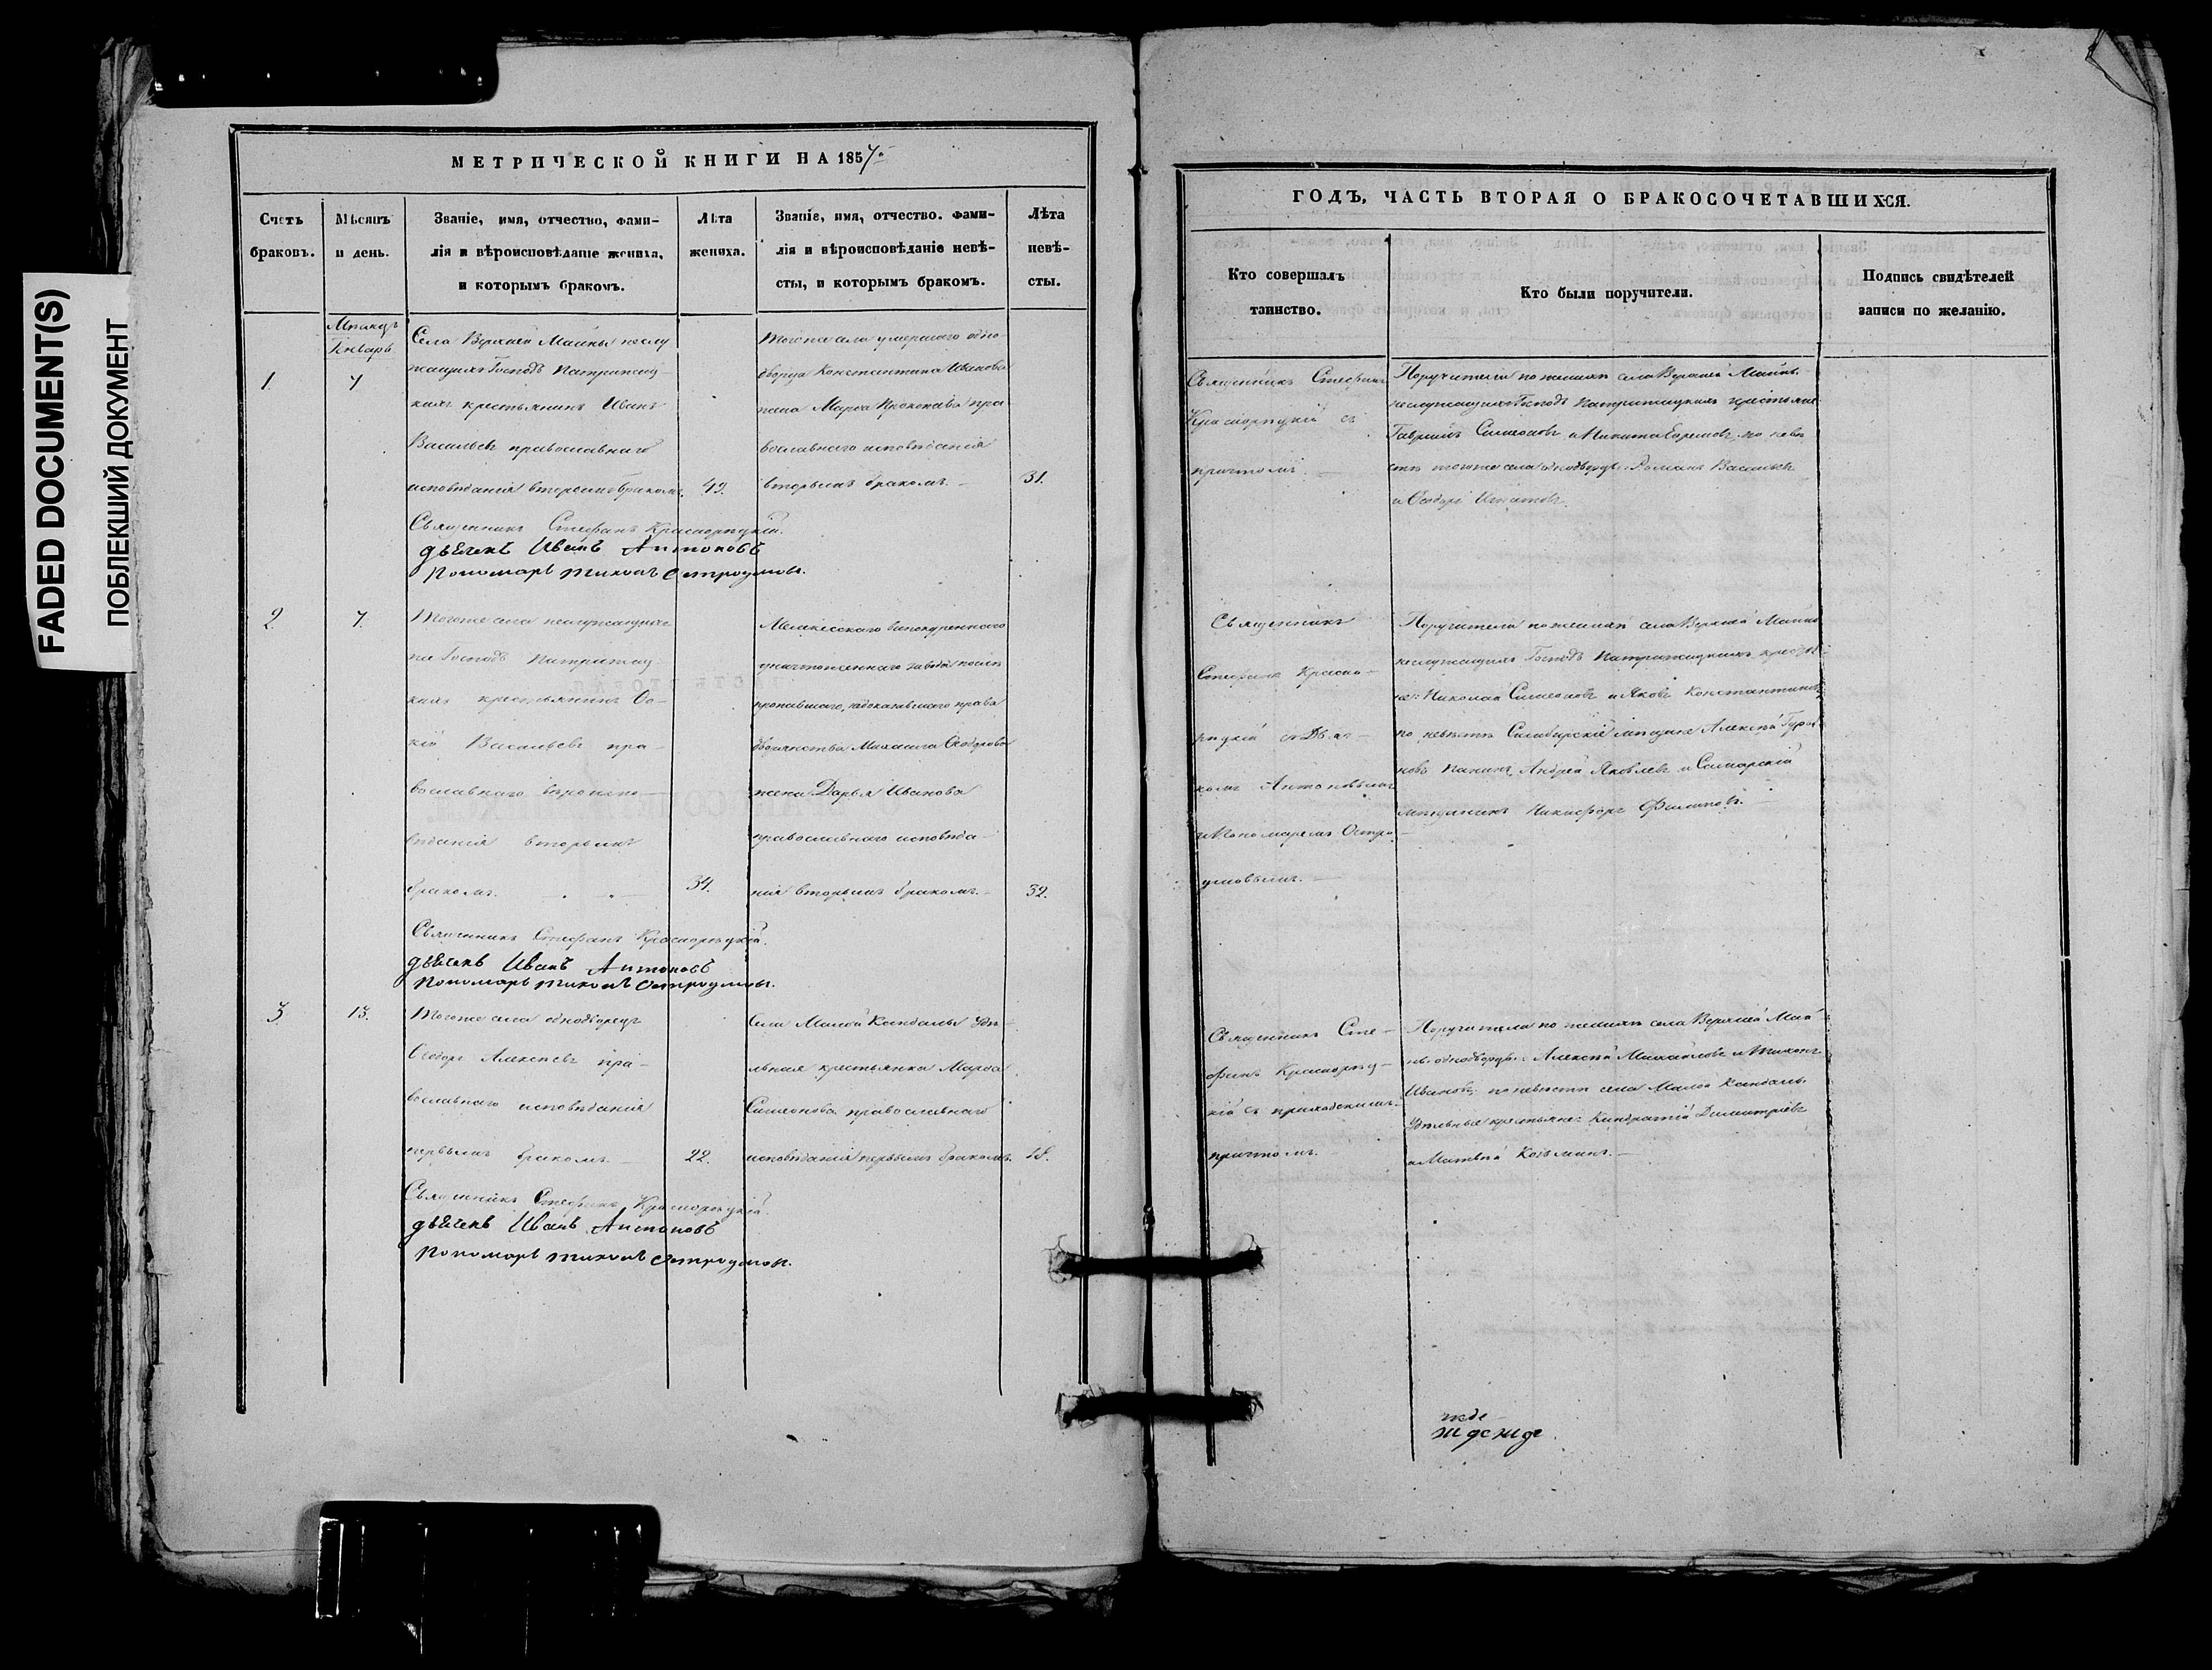 FADED DOCUMENT(S)
ПОБЛЕКШИЙ ДОКУМЕНТ
МЕТРИЧЕСКОЙ КНИГИ НА 1857:
Счетъ браковъ.
Мѣсяцъ и день.
Званіе, имя, отчество, фами-
лія и вѣроисповѣданіе жениха,
и которымъ бракомъ.
Лѣта
жениха.
Званіе, имя, отчество. фами-
лія и вѣроисповѣданіе невѣ-
сты, и которымъ бракомъ.
Лѣта
невѣ-
сты.
Мѣсяцъ
Январь
1
7
Села Верхней Майны неслу
жащихъ Господъ Патрикец-
кихъ крестьянинъ Иванъ
Васильевъ православнаго
исповѣданія вторымъ бракомъ.
42.
Тогоже села умершаго одно-
дворца Константина Иванова
жена Марѳа Прокопьева пра
вославнаго исповѣданія
вторымъ бракомъ. —
31.
Священникъ Стефанъ Красорѣцкій.
дьячекъ Иванъ Антоновъ
Пономарь Тихонъ Остроумовъ.
2.
7.
Тогоже села неслужащихъ
Господъ
кихъ крестьянинъ
Васильевъ пра-
вославнаго вѣроиспо-
вѣданія вторымъ
бракомъ.
34.
Мелекесскаго винокуреннаго
завода
недоказавшаго права
дворянства Михаила Ѳеодорова
жена Дарья Иванова
православнаго исповѣда-
нія вторымъ бракомъ. —
32.
Священникъ Стефанъ Красорѣцкій.
дьячекъ Иванъ Антоновъ
Пономарь Тихонъ Остроумовъ.
3
13.
Тогоже села однодворецъ
Ѳеодоръ Алексѣевъ пра-
вославнаго исповѣданія
первымъ бракомъ. —
22.
Села Малой Кандалы Удѣ-
льная крестьянка Марѳа
Симеонова православнаго
исповѣданія первымъ бракомъ.
18.
Священникъ Стефанъ Красорѣцкій.
дьячекъ Иванъ Антоновъ
Пономарь Тихонъ Остроумовъ.
ГОДЪ, ЧАСТЬ ВТОРАЯ О БРАКОСОЧЕТАВШИХСЯ.
Кто совершалъ
таинство.
Кто были поручители.
Подпись свидѣтелей
записи по желанію.
Священникъ Стефанъ
Красорѣцкій съ
причтомъ. —
Поручители по женихѣ села Верхней Майны
неслужащихъ Господъ крестьяне
Гавріилъ Симеоновъ и Никита Ефремовъ, по невѣ
стѣ тогоже села однодворцы: Романъ Васильевъ
и Ѳеодоръ Игнатьевъ.
Священникъ
Стефанъ Красно-
рѣцкій съ Дьяч-
комъ Антоновымъ
и Пономаремъ Остро-
умовымъ. —
Поручители по женихѣ села Верхней Майны
неслужащихъ Господъ
Николай Симеоновъ и Яковъ Константиновъ,
по невѣстѣ Симбирскіе мѣщане Алексѣй
Андрей Яковлевъ и Самарскій
мѣщанинъ Никифоръ Филиповъ. —
Священникъ Сте-
фанъ Красорѣц-
кій съ приходскимъ
причтомъ. —
Поручители по женихѣ села Верхней Май
ны однодворцы: Алексѣй Михайловъ и Тихонъ
Ивановъ, по невѣстѣ села Малой Кандалы
Удѣльные крестьяне: Кондратій Димитріевъ
и Матвѣй Козьминъ. —